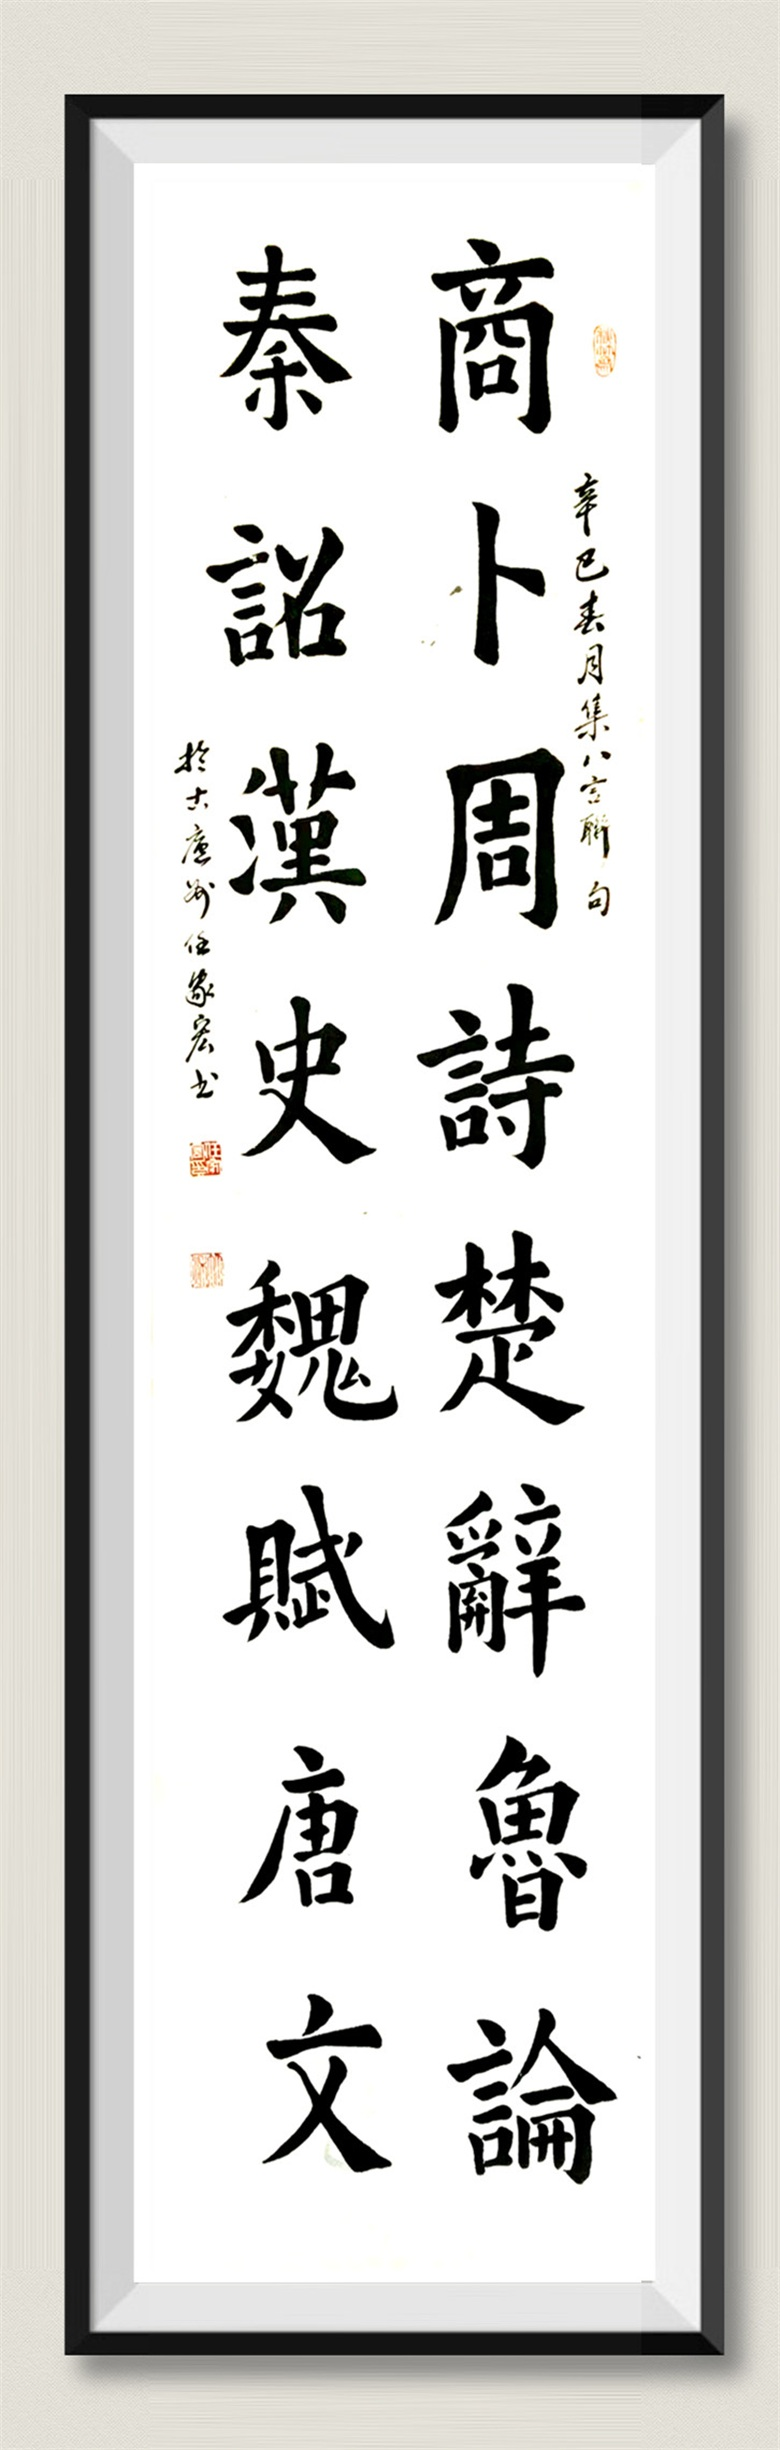 辛巳春月集八言聯句
商卜周詩楚辭魯論
秦詔漢史魏賦唐文
於古廬州任家宏书